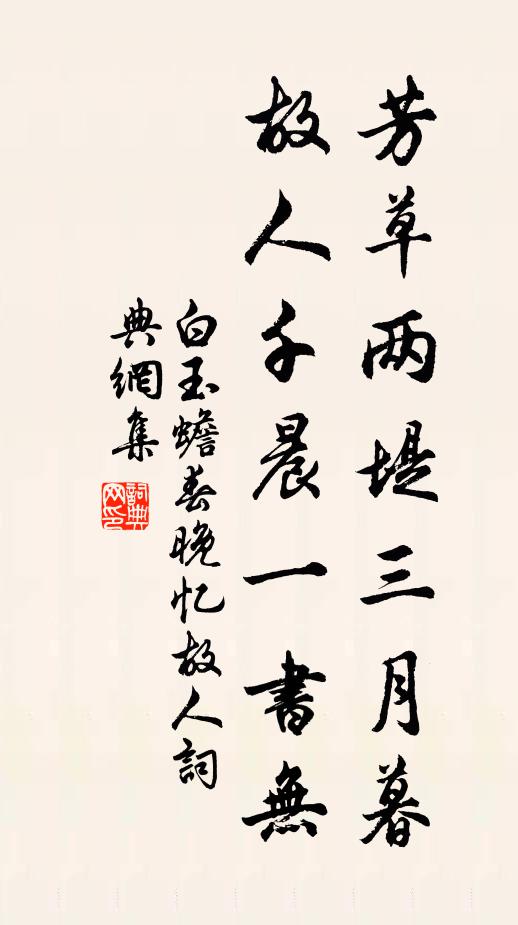 芳草两堤三月暮
故人千晨一書無
白玉蟾春晚忆故人詞
典網集
詞典网印